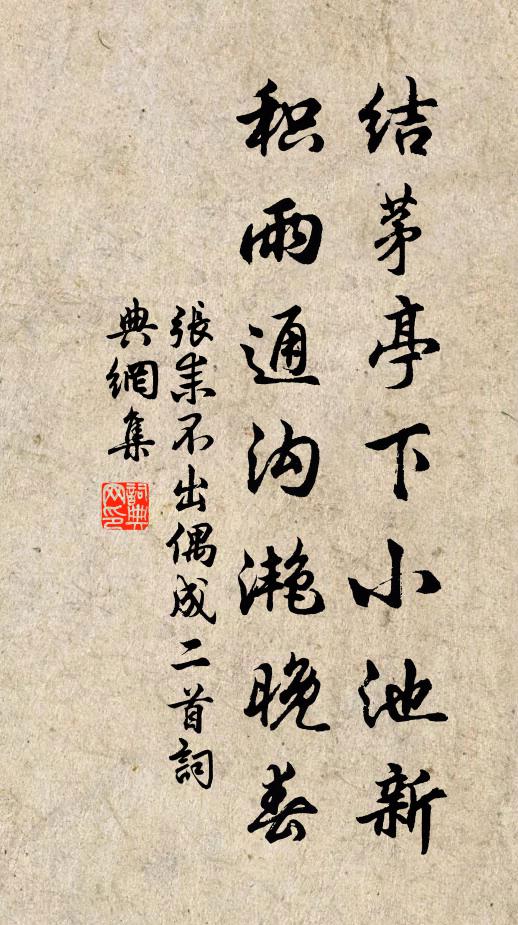 结茅亭下小池新
积雨通沟滟晚春
張耒不出偶成二首詞
典網集
詞典
网印